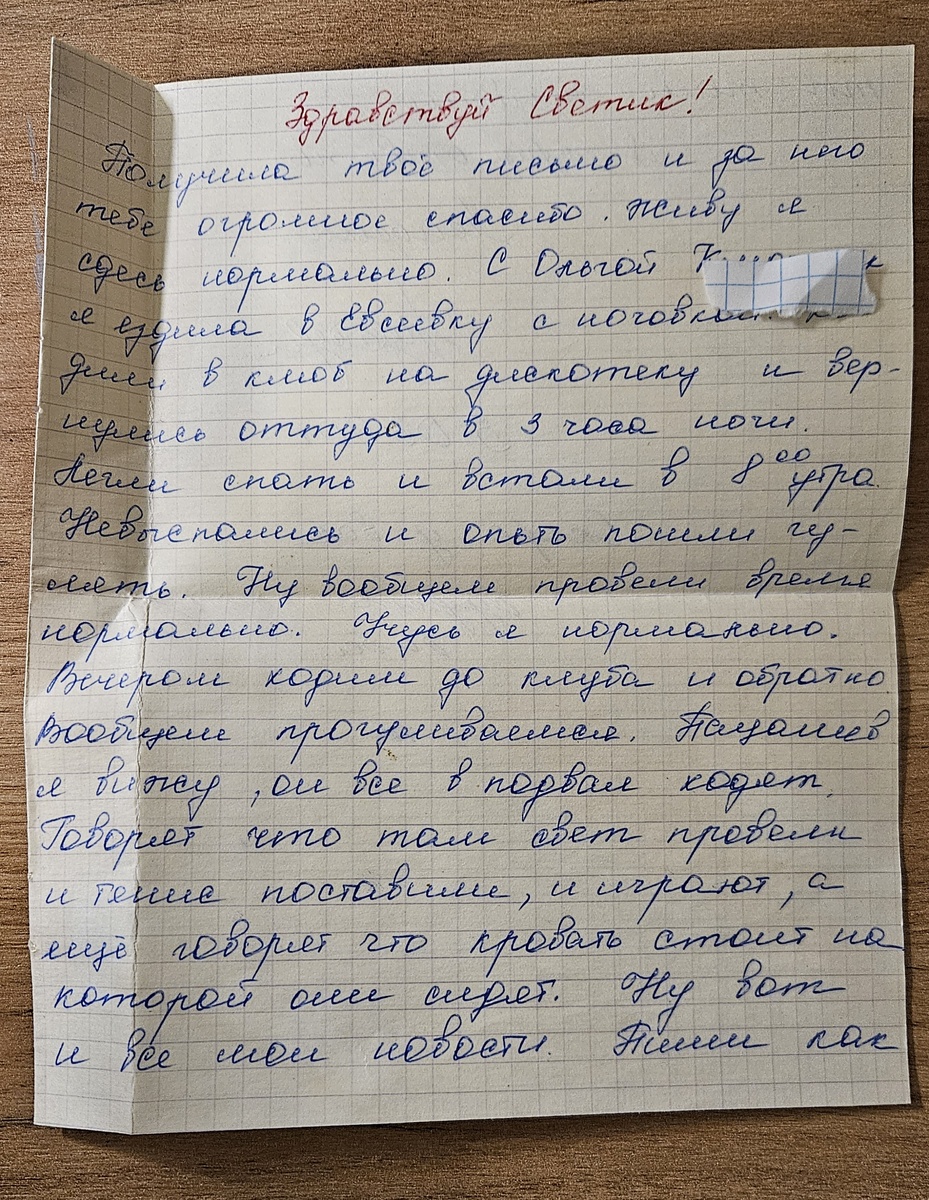 Здравствуй Светик!
Получила твоё письмо и за него
тебе огромное спасибо. Живу я
сдесь нормально. С Ольгой
я ездила в Евсеевку с ночовкой.
дили в клюб на дискотеку и вер-
нулись оттуда в 3 часа ночи.
Легли спать и встали в 8 00 утра.
Невыспались и опять пошли гу-
лять. Ну вообщем провели время
нормально. Учусь я нормально.
Вечером ходим до клуба и обратно
Вообщем прогуливаемся. Пацанов
я вижу, он все в подвал ходят.
Говорят что там свет провели
и тенис поставили, и играют, а
ещё говорят что кровать стоит на
которой они сидят. Ну вот
и все мои новости. Пиши как